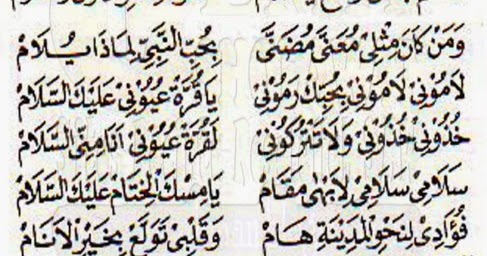 وَمَنْ كَانَ مِثْلِيْ مُعَنًّى مُضَنًّى بِحُبِّ النَّبِيِّ لِمَاذَا يُلَامْ
لَامُوْنِيْ لَامُوْنِيْ بِحُبِّكْ رَمَوْنِيْ يَاقُرَّةَ عُيُوْنِيْ عَلَيْكَ السَّلَامْ
خُذُوْنِيْ خُذُوْنِيْ وَلَا تَتْرُكُوْنِيْ لِقُرَّةِ عُيُوْنِيْ اَنَا مِنِّى السَّلَامْ
سَلَامِيْ سَلَامِيْ لِاَبْهٰى مَقَامْ يَامِسْكَ الْخِتَامْ عَلَيْكَ السَّلَامْ
فُؤَادِيْ لِنَحْوِ الْمَدِيْنَةِ هَامْ وَقَلْبِيْ تَوَلَّعْ بِخَيْرِ الْاَنَامْ